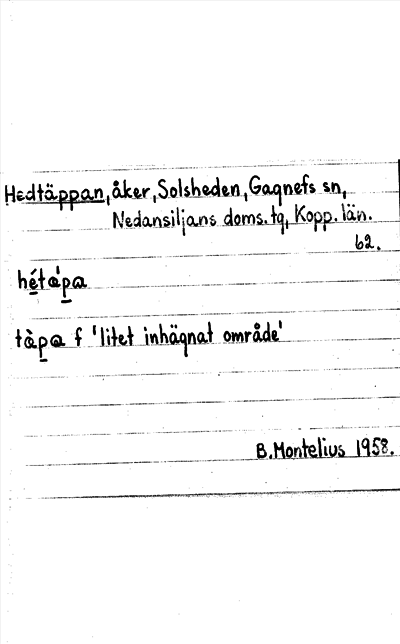 Hedtäppan, åker, Solsheden, Gagnefs sn,
Nedansiljans doms. tg, Kopp. län.
62.
hétàpa
tàpa f 'litet inhägnat område'
B. Montelius 1958.